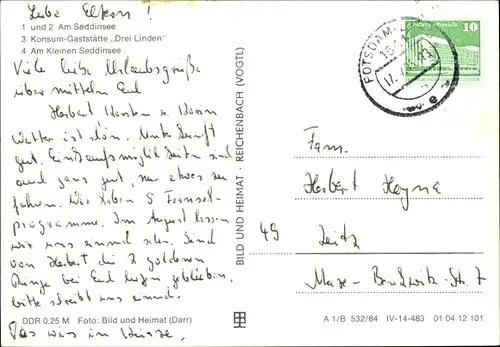 Liebe Eltern!
1 und 2 Am Seddinsee
3 Konsum-Gaststätte „Drei Linden"
4 Am Kleinen Seddinsee
Viele liebe Urlaubsgrüße
übermitteln Euch
Herbert, Karsten u. Karin
Wetter ist schön. Unterkunft
gut. Einkaufsmöglichkeiten sind
auch ganz gut, nur etwas zu
fahren. Wir haben 5 Fernseh-
programme. Im August lassen
wir uns einmal sehen. Sind
von Herbert die 2 goldenen
Ringe bei Euch liegen geblieben,
bitte schreibt uns einmal.
DDR 0,25 M Foto: Bild und Heimat (Darr)
Das wär's in Kürze.
BILD UND HEIMAT · REICHENBACH (VOGTL)
POTSDAM
10
Fam.
Herbert Heyne
49 Zeitz
Maxe-Benkwitz-Str. 7
A 1/B 532/84 IV-14-483 01 04 12 101